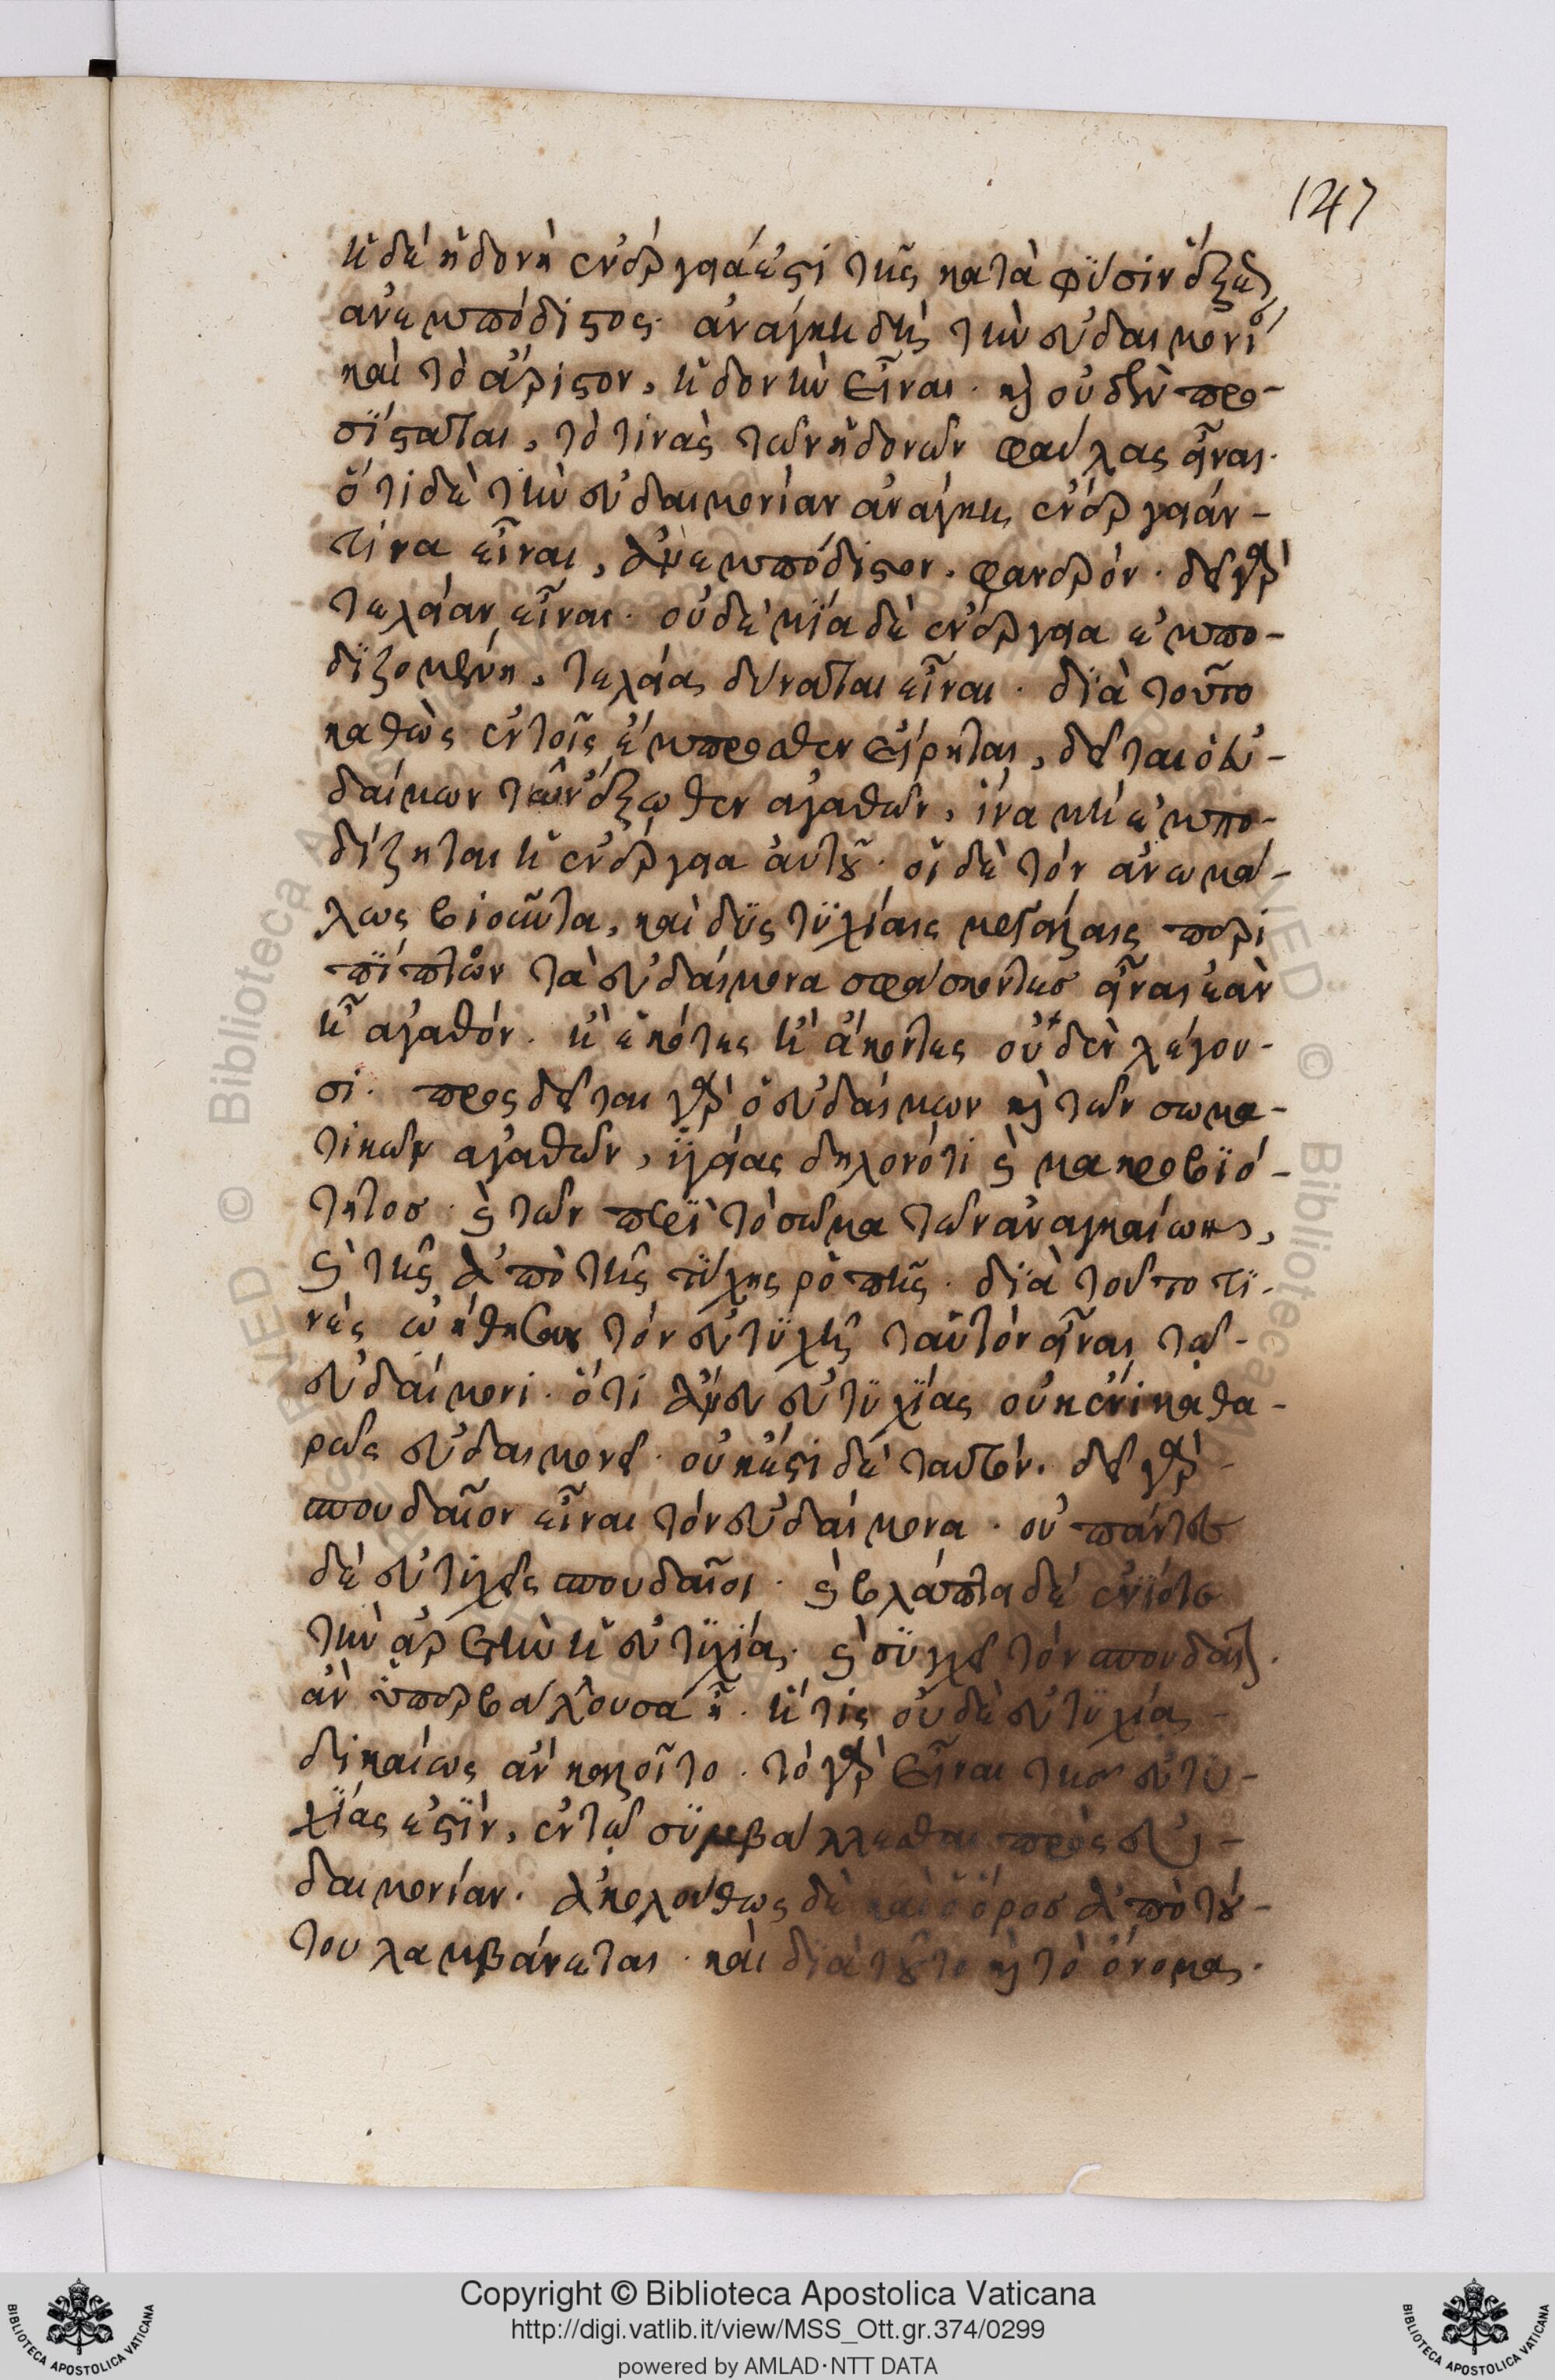 147
ἡ δέ ἡδονὴ ἐνέργειά ἐστι τῆς κατὰ φύσιν ἕξεως
ἀνεμπόδιστος. ἀνάγκη δὴ τὴν εὐδαιμονί
καὶ τὸ ἄριστον, ἡδονὴν εἶναι. καὶ οὐδὲν προ-
σίσταται, τὸ τινὰς τῶν ἡδονῶν φαύλας εἶναι.
ὅτι δὲ τὴν εὐδαιμονίαν ἀνάγκη ἐνέργειαν-
τινα εἶναι, ἀνεμπόδιστον, φανερόν. δεῖ γὰρ
τελείαν εἶναι. οὐδεμία δὲ ἐνέργεια ἐμπο-
διζομένη, τελεία δύναται εἶναι. διὰ τοῦτο
καθὼς ἐν τοῖς ἔμπροσθεν εἴρηται, δεῖται ὁ εὐ-
δαίμων τῶν ἔξωθεν ἀγαθῶν, ἵνα μὴ ἐμπο-
δίζηται ἡ ἐνέργεια αὐτοῦ. οἱ δὲ τὸν ἀνωμά-
λως βιοῦντα, καὶ δυςτυχίαις μεγάλαις περι
πίπτων τα εὐδαίμονα φάσκοντες εἶναι ἐὰν
ἦ ἀγαθόν. ἢ ἑκότες ἢ ἄκοντες οὐδὲν λέγου-
σι. προςδεῖται γὰρ ὁ εὐδαίμων καὶ τῶν σωμα-
τικῶν ἀγαθῶν, ὑγείας δηλονότι καὶ μακροβιό-
τητος. καὶ τῶν περὶ τὸ σῶμα τῶν ἀναγκαίων,
καὶ τῆς ἀπὸ τῆς τύχης ῥοπῆς. διὰ τοῦτο τι-
νὲς ᾠήθησαν τὸν εὐτυχῆ ταὐτὸν εἶναι τῷ-
εὐδαίμονι. ὅτι ἄνευ εὐτυχίας οὐκ ἔνι καθα-
ρῶς εὐδαιμονεῖ. οὐκ ἔστι δὲ ταὐτόν. δεῖ γὰρ-
σπουδαῖον εἶναι τὸν εὐδαίμονα. οὐ πάντες
δὲ εὐτυχεῖς σπουδαῖοι. καὶ βλάπτει δὲ ἐνίοτε
τὴν ἀρετὴν ἡ εὐτυχία. καὶ συγχεῖ τὸν σπουδαῖον.
ἂν ὑπερβάλλουσα ἦ. ἥτις οὐδὲ εὐτυχία-
δικαίως ἂν καλοῖτο. τὸ γὰρ εἶναι τῆς εὐτυ-
χίας ἐστὶν, ἐν τῷ συμβάλλεσθαι πρὸς εὐ-
δαιμονίαν. ἀκολούθως δὲ καὶ ὁ ὅρος ἀπὸ τού-
του λαμβάνεται. καὶ διὰ τοῦτο καὶ τὸ ὄνομα.
Copyright © Biblioteca Apostolica Vaticana
http://digi.vatlib.it/view/MSS_Ott.gr.374/0299
powered by AMLAD·NTT DATA